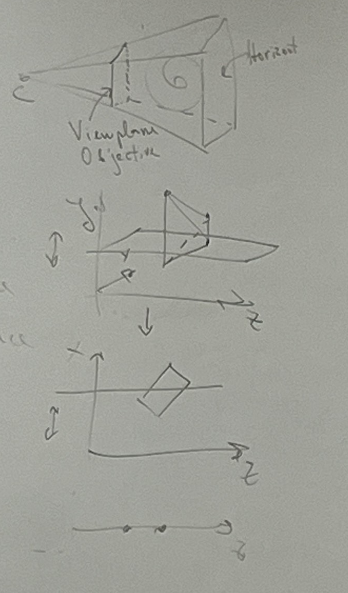 Horizont
C
Viewplane
Objective
y
z
x
z
z